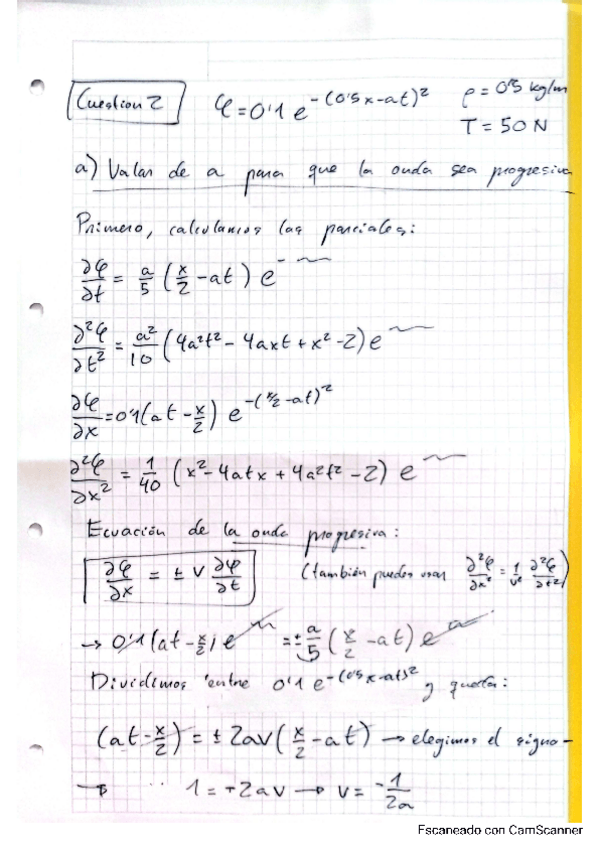 Cuestion 2   φ = 0'1 e^-(0'5x-at)²   ρ = 0'5 kg/m
T = 50 N
a) Valor de a para que la onda sea progresiva
Primero, calculamos las parciales:
∂φ/∂t = a/5 (x/2 - at) e^-~
∂²φ/∂t² = a²/10 (4a²t² - 4axt + x² - 2) e^~
∂φ/∂x = 0'1(at - x/2) e^-(x/2-at)²
∂²φ/∂x² = 1/40 (x² - 4atx + 4a²t² - 2) e^~
Ecuación de la onda progresiva:
∂φ/∂x = ± V ∂φ/∂t   (también puedes usar ∂²φ/∂x² = 1/v² ∂²φ/∂t²)
→ 0'1(at - x/2) e^~ = ± a/5 (x/2 - at) e^~
Dividimos entre 0'1 e^-(0'5x-at)² y queda:
(at - x/2) = ± 2av (x/2 - at) → elegimos el signo -
→ 1 = -2av → v = -1/2a
Escaneado con CamScanner